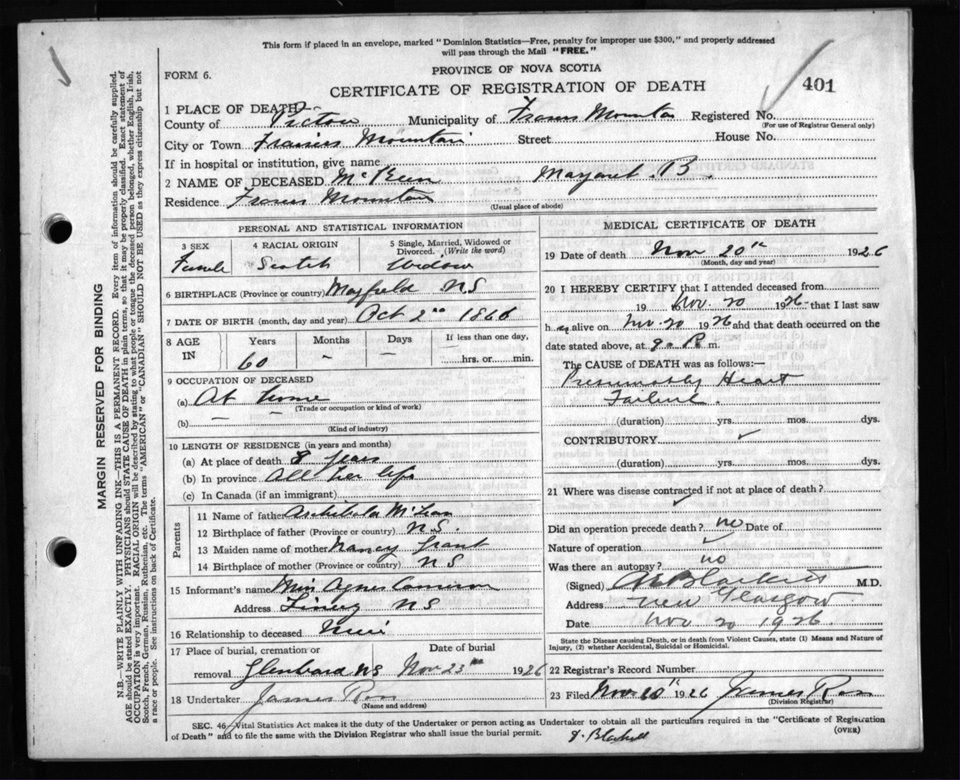 This form if placed in an envelope, marked "Dominion Statistics—Free, penalty for improper use $300," and properly addressed
will pass through the Mail "FREE."
FORM 6.
PROVINCE OF NOVA SCOTIA
CERTIFICATE OF REGISTRATION OF DEATH
401
1 PLACE OF DEATH—
County of Pictou Municipality of Registered No.
(For use of Registrar General only)
City or Town Mountain Street House No.
If in hospital or institution, give name
2 NAME OF DECEASED Margaret B.
Residence Mountain (Usual place of abode)
PERSONAL AND STATISTICAL INFORMATION
3 SEX 4 RACIAL ORIGIN 5 Single, Married, Widowed or Divorced. (Write the word)
Female Scotch Widow
6 BIRTHPLACE (Province or country) Mayfield NS
7 DATE OF BIRTH (month, day and year) Oct 2nd 1866
8 AGE IN Years Months Days If less than one day,
60 – – hrs. or min.
9 OCCUPATION OF DECEASED
(a) At home
(Trade or occupation or kind of work)
(b) — —
(Kind of industry)
10 LENGTH OF RESIDENCE (in years and months)
(a) At place of death 8 years
(b) In province All her life
(c) In Canada (if an immigrant)
Parents
11 Name of father
12 Birthplace of father (Province or country) NS.
13 Maiden name of mother Nancy Grant
14 Birthplace of mother (Province or country) NS
15 Informant's name Agnes Cameron
Address NS
16 Relationship to deceased
17 Place of burial, cremation or removal Date of burial
Glenbard NS Nov 23rd 1926
18 Undertaker James Ross
(Name and address)
MEDICAL CERTIFICATE OF DEATH
19 Date of death Nov 20th 1926
(Month, day and year)
20 I HEREBY CERTIFY that I attended deceased from
19 Nov. 20 1926 that I last saw
h er alive on Nov. 20 1926 and that death occurred on the
date stated above, at m.
The CAUSE of DEATH was as follows:—
Presumably Heart
Failure
(duration) yrs. mos. dys.
CONTRIBUTORY
(duration) yrs. mos. dys.
21 Where was disease contracted if not at place of death?
Did an operation precede death? no Date of
Nature of operation
Was there an autopsy? no
(Signed) M.D.
Address New Glasgow
Date Nov 20 1926
State the Disease causing Death, or in death from Violent Causes, state (1) Means and Nature of
Injury, (2) whether Accidental, Suicidal or Homicidal.
22 Registrar's Record Number
23 Filed Nov 1926 James Ross
(Division Registrar)
SEC. 46—Vital Statistics Act makes it the duty of the Undertaker or person acting as Undertaker to obtain all the particulars required in the "Certificate of Registration
of Death" and to file the same with the Division Registrar who shall issue the burial permit.
(OVER)
MARGIN RESERVED FOR BINDING
N.B.—WRITE PLAINLY WITH UNFADING INK—THIS IS A PERMANENT RECORD. Every item of information should be carefully supplied.
AGE should be stated EXACTLY. PHYSICIANS should STATE CAUSE OF DEATH in plain terms, so that it may be properly classified. Exact statement of
OCCUPATION is very important. RACIAL ORIGIN will be described by stating to what people or tongue the deceased person belonged, whether English, Irish,
Scotch, French, German, Russian, Ruthenian, etc. The terms "AMERICAN" or "CANADIAN" SHOULD NOT BE USED as they express citizenship but not
a race or people. See instructions on back of Certificate.